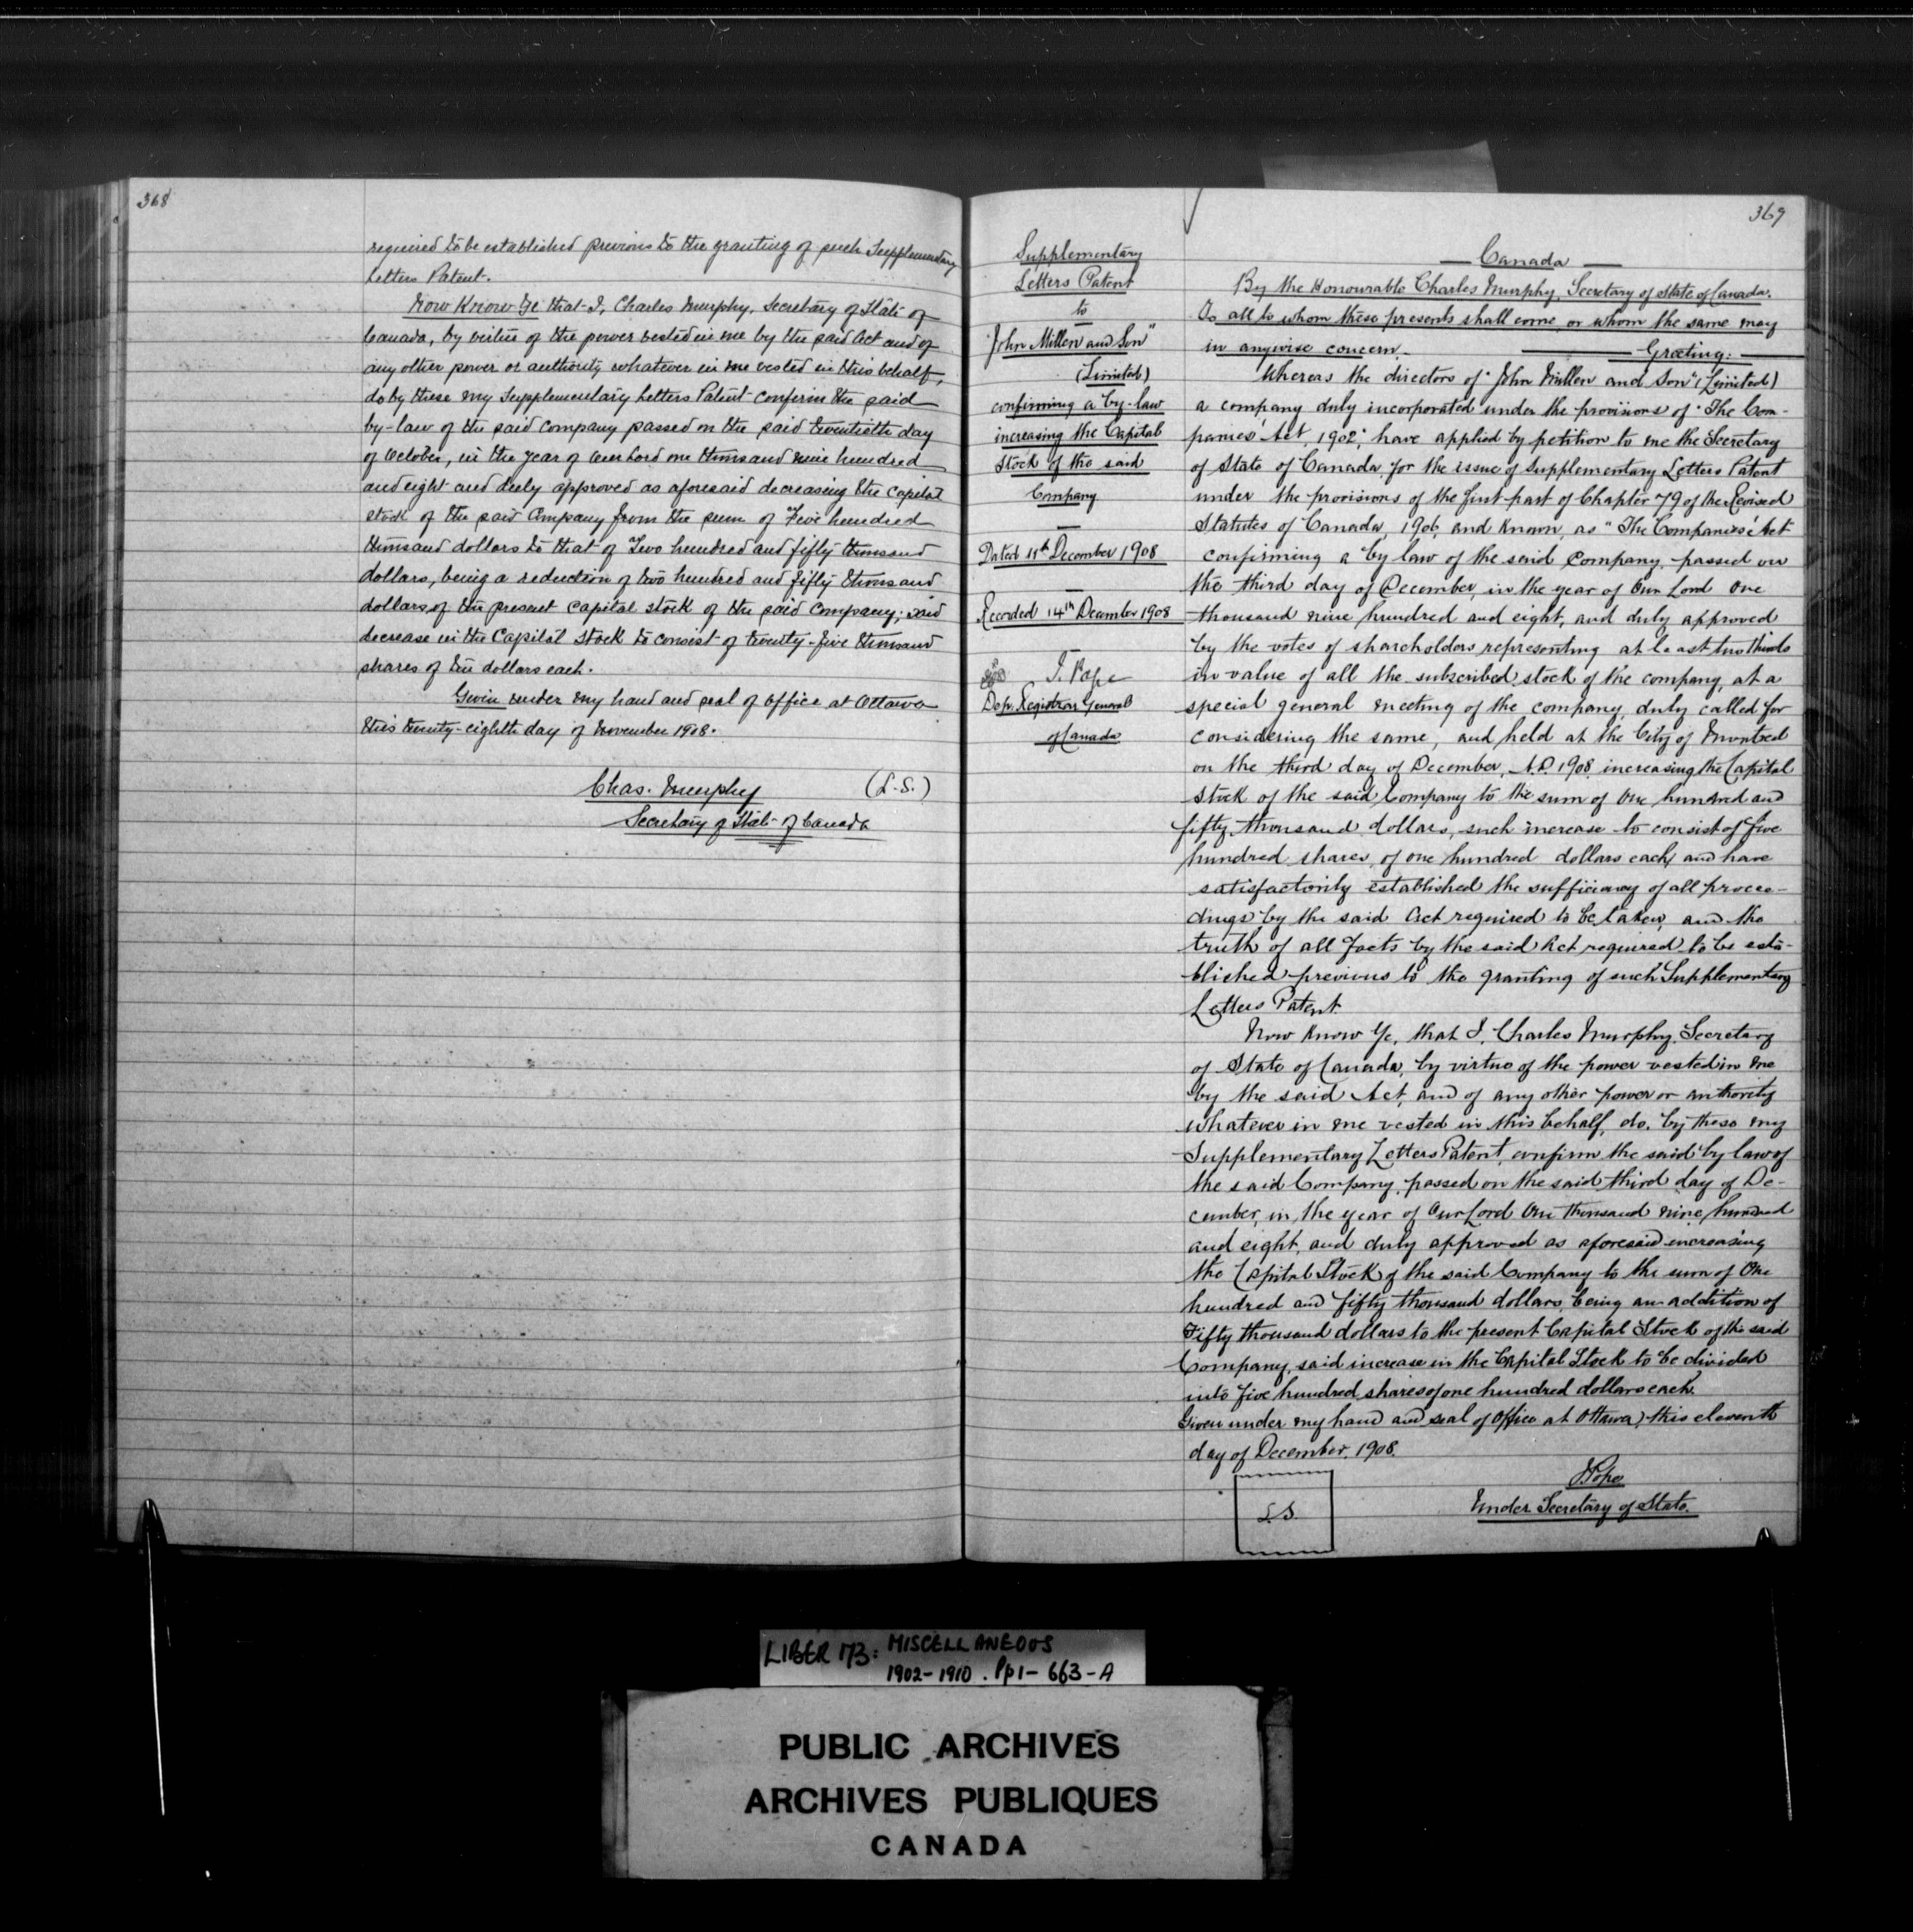 368
required to be established previous to the granting of such Supplementary
Letters Patent.
Now Know Ye that I, Charles Murphy, Secretary of State of
Canada, by virtue of the power vested in me by the said Act and of
any other power or authority whatever in me vested in this behalf,
do by these my Supplementary Letters Patent confirm the said
by-law of the said company passed on the said twentieth day
of October, in the year of Our Lord one thousand nine hundred
and eight and duly approved as aforesaid decreasing the capital
stock of the said Company from the sum of Five hundred
thousand dollars to that of Two hundred and fifty thousand
dollars, being a reduction of two hundred and fifty thousand
dollars, of the present capital stock of the said Company; said
decrease in the Capital stock to consist of twenty-five thousand
shares of ten dollars each.
Given under my hand and seal of office at Ottawa
this twenty-eighth day of November 1908.
Chas. Murphy (L.S.)
Secretary of State of Canada
369
Supplementary
Letters Patent
to
"John Millen and Son"
(Limited)
confirming a by-law
increasing the Capital
Stock of the said
Company
Dated 11th December 1908
Recorded 14th December 1908
J. Pope
Dep. Registrar General
of Canada
Canada
By the Honourable Charles Murphy, Secretary of State of Canada.
To all to whom these presents shall come, or whom the same may
in anywise concern. Greeting:
Whereas the directors of "John Millen and Son" (Limited)
a company duly incorporated under the provisions of "The Com-
panies' Act, 1902", have applied by petition to me the Secretary
of State of Canada, for the issue of Supplementary Letters Patent
under the provisions of the first part of Chapter 79 of the Revised
Statutes of Canada, 1906, and known as "The Companies' Act
confirming a by law of the said company, passed on
the third day of December, in the year of Our Lord One
thousand nine hundred and eight, and duly approved
by the votes of shareholders representing at least two thirds
in value of all the subscribed stock of the company, at a
special general meeting of the company, duly called for
considering the same, and held at the City of Montreal
on the third day of December, A.D. 1908, increasing the Capital
Stock of the said Company to the sum of One hundred and
fifty thousand dollars, such increase to consist of five
hundred shares, of one hundred dollars each, and have
satisfactorily established the sufficiency of all procee-
dings by the said Act required to be taken, and the
truth of all facts by the said Act required to be esta-
blished previous to the granting of such Supplementary
Letters Patent.
Now Know Ye, that I, Charles Murphy, Secretary
of State of Canada, by virtue of the power vested in me
by the said Act, and of any other power or authority
whatever in me vested in this behalf, do, by these my
Supplementary Letters Patent, confirm the said by law of
the said Company, passed on the said third day of De-
cember, in the year of Our Lord One thousand nine hundred
and eight, and duly approved as aforesaid increasing
the Capital Stock of the said Company to the sum of One
hundred and fifty thousand dollars, being an addition of
Fifty thousand dollars to the present Capital Stock of the said
Company, said increase in the Capital Stock to be divided
into five hundred shares of one hundred dollars each.
Given under my hand and seal of Office at Ottawa, this eleventh
day of December, 1908.
J. Pope
Under Secretary of State.
L.S.
LIBER 173: MISCELLANEOUS
1902-1910. Pp1-663-A
PUBLIC ARCHIVES
ARCHIVES PUBLIQUES
CANADA